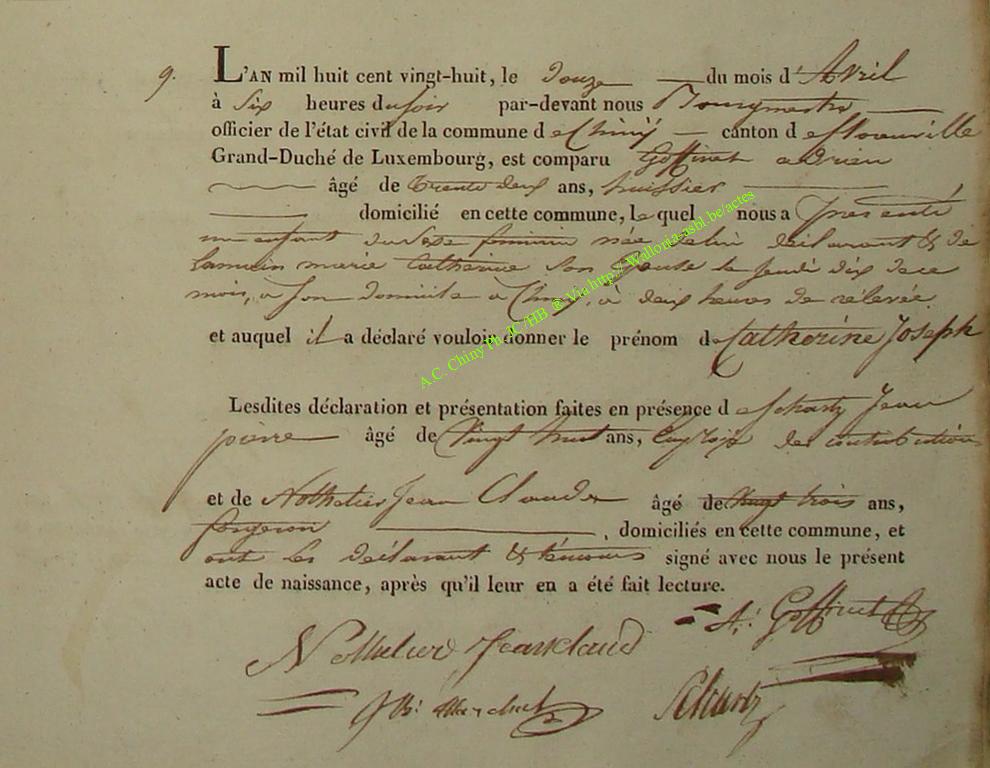 9. L'AN mil huit cent vingt-huit, le douze du mois d'Avril
à Six heures du soir par-devant nous Bourgmestre
officier de l'état civil de la commune de Chiny canton de florenville
Grand-Duché de Luxembourg, est comparu Goffinet adrien
âgé de trente deux ans, huissier
domicilié en cette commune, le quel nous a présenté
un enfant du Sexe feminin née de lui déclarant & de
marie Catherine Son Epouse le Jeudi dix de ce
mois, a son domicile à Chiny, à deux heures de rélevée
et auquel il a déclaré vouloir donner le prénom de Catherine Joseph
Lesdites déclaration et présentation faites en présence de Schartz Jean
pierre âgé de Vingt huit ans, Employé des contributions
et de Nothelier Jean Claude âgé de vingt trois ans,
forgeron , domiciliés en cette commune, et
ont les déclarant & témoins signé avec nous le présent
acte de naissance, après qu'il leur en a été fait lecture.
A: Goffinet
Nothelier Jean Claud
Schartz
A.C. Chiny Ph. JC/HB ® Via http://Wallonia-asbl.be/actes